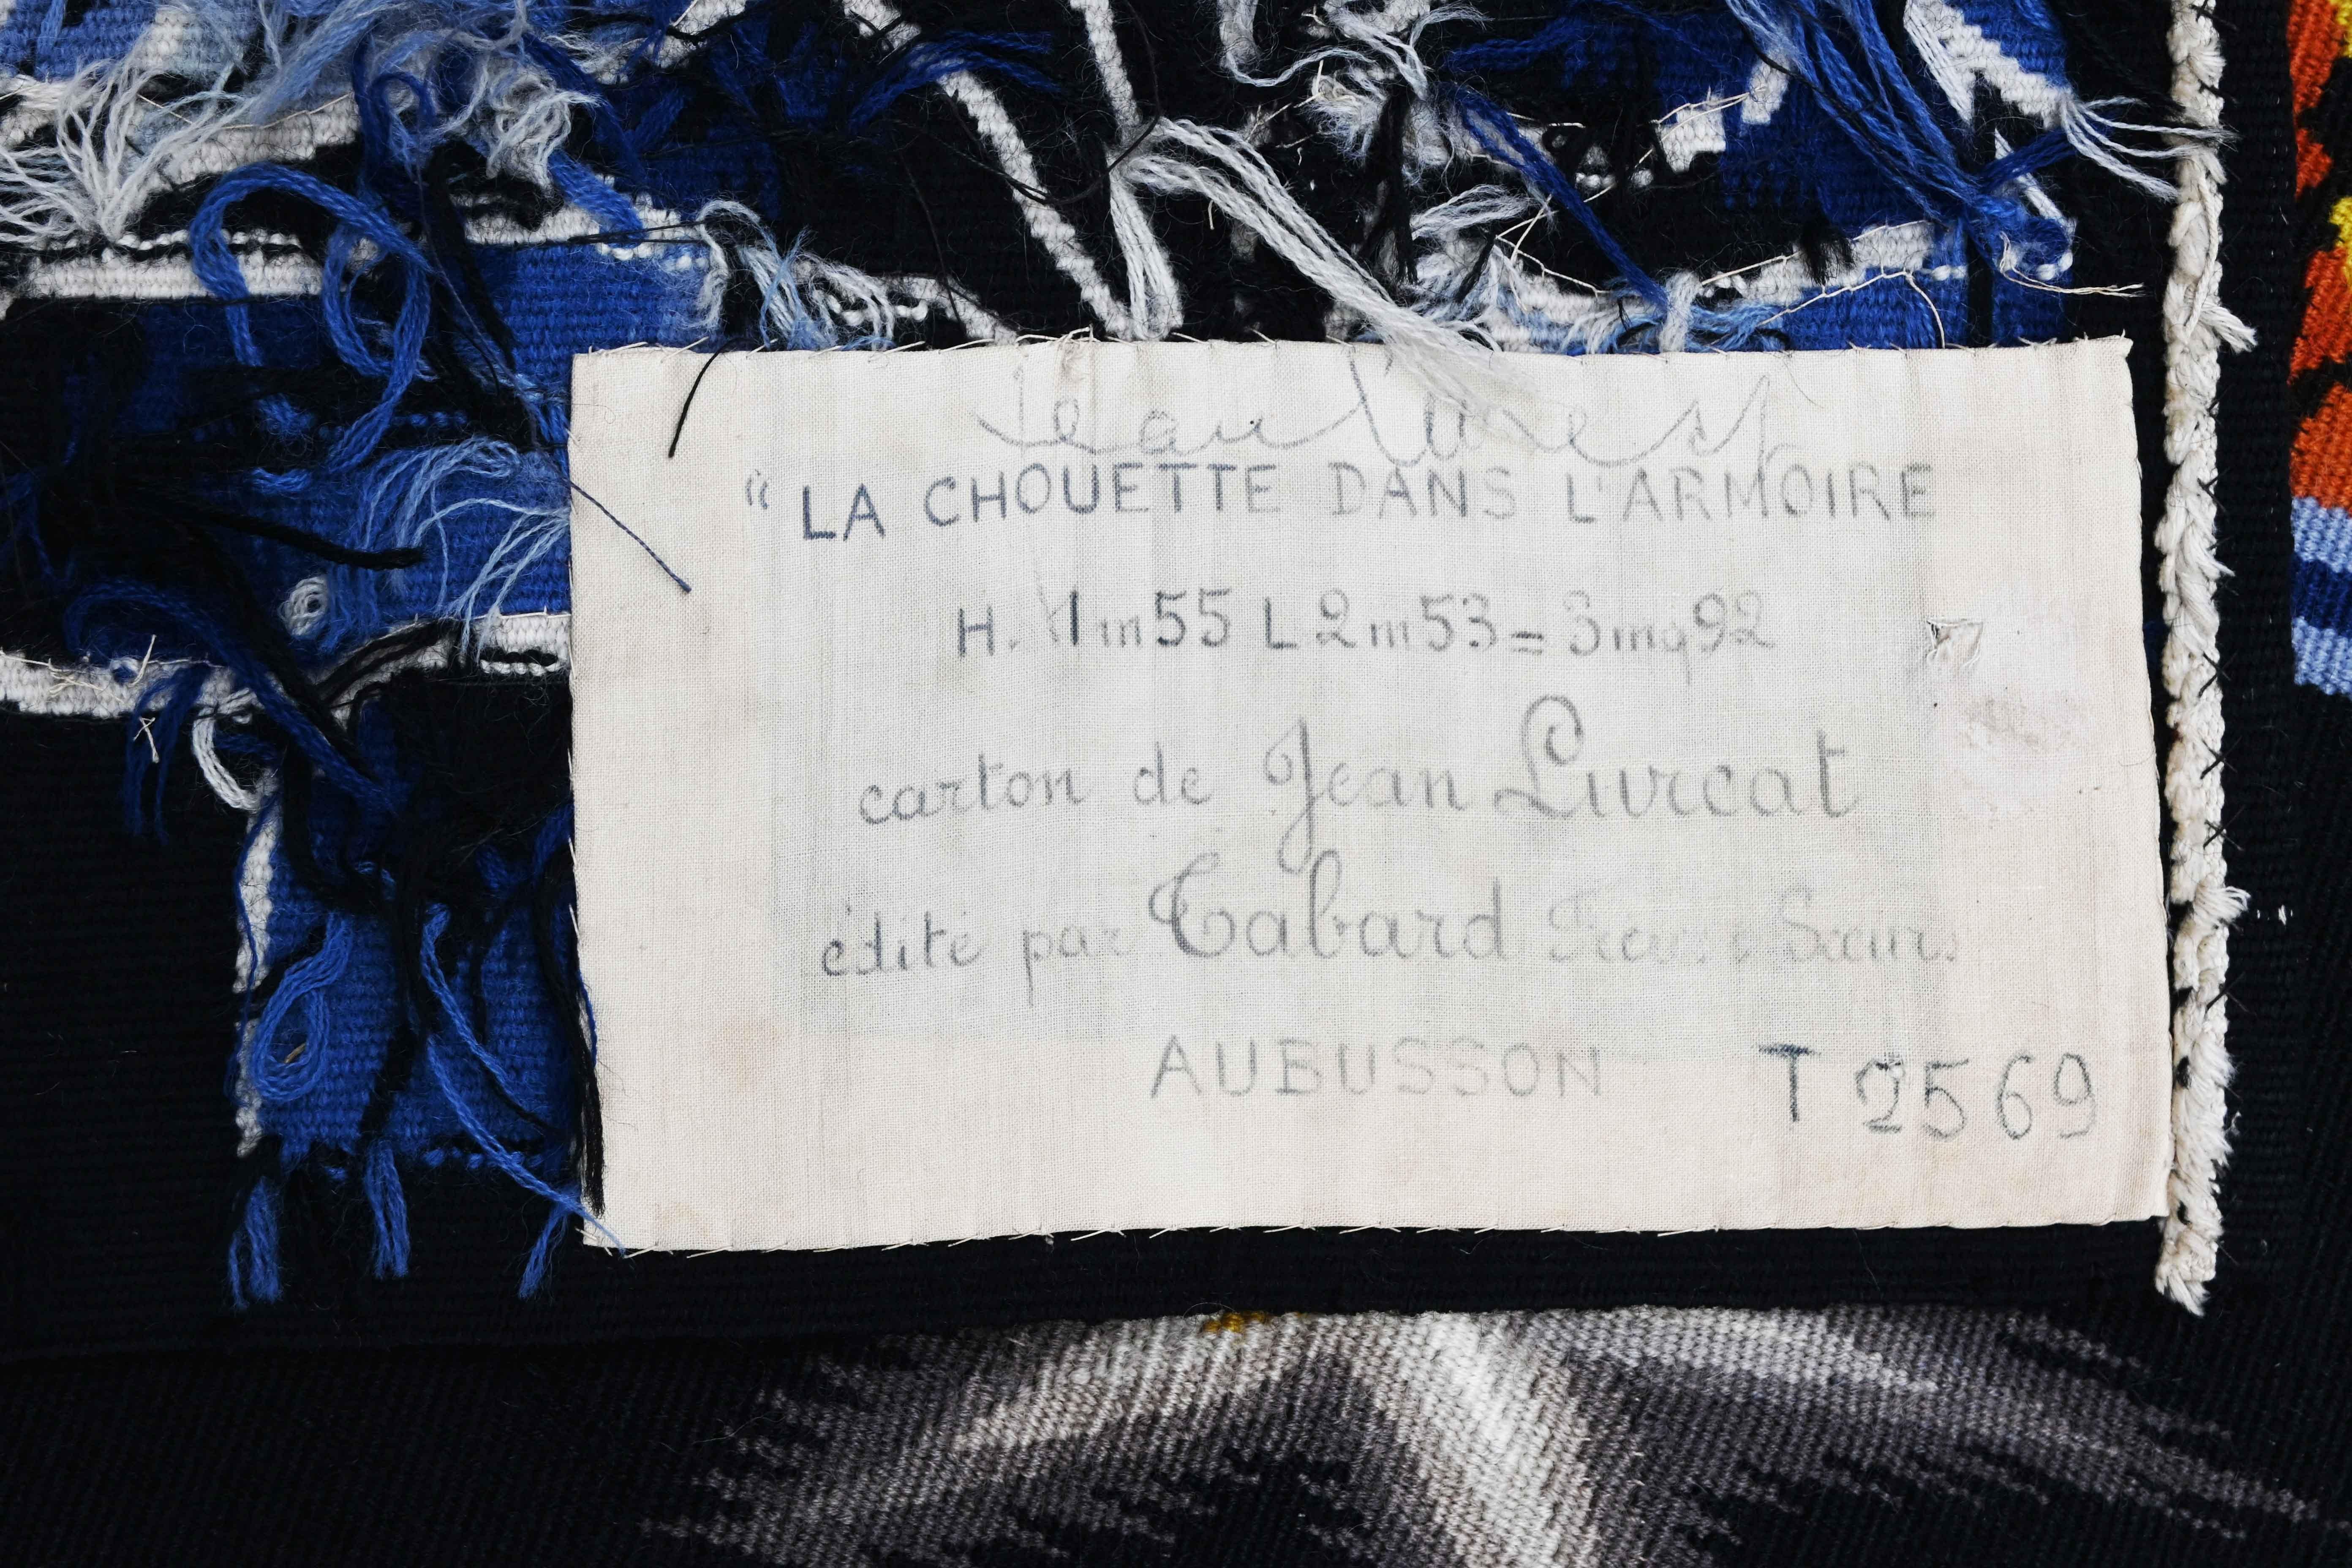 Jean Lurçat
“LA CHOUETTE DANS L'ARMOIRE
H. 1m55 L 2m53 = 3mq92
carton de Jean Lurcat
édité par Tabard Freres & Sœurs
AUBUSSON T 2569